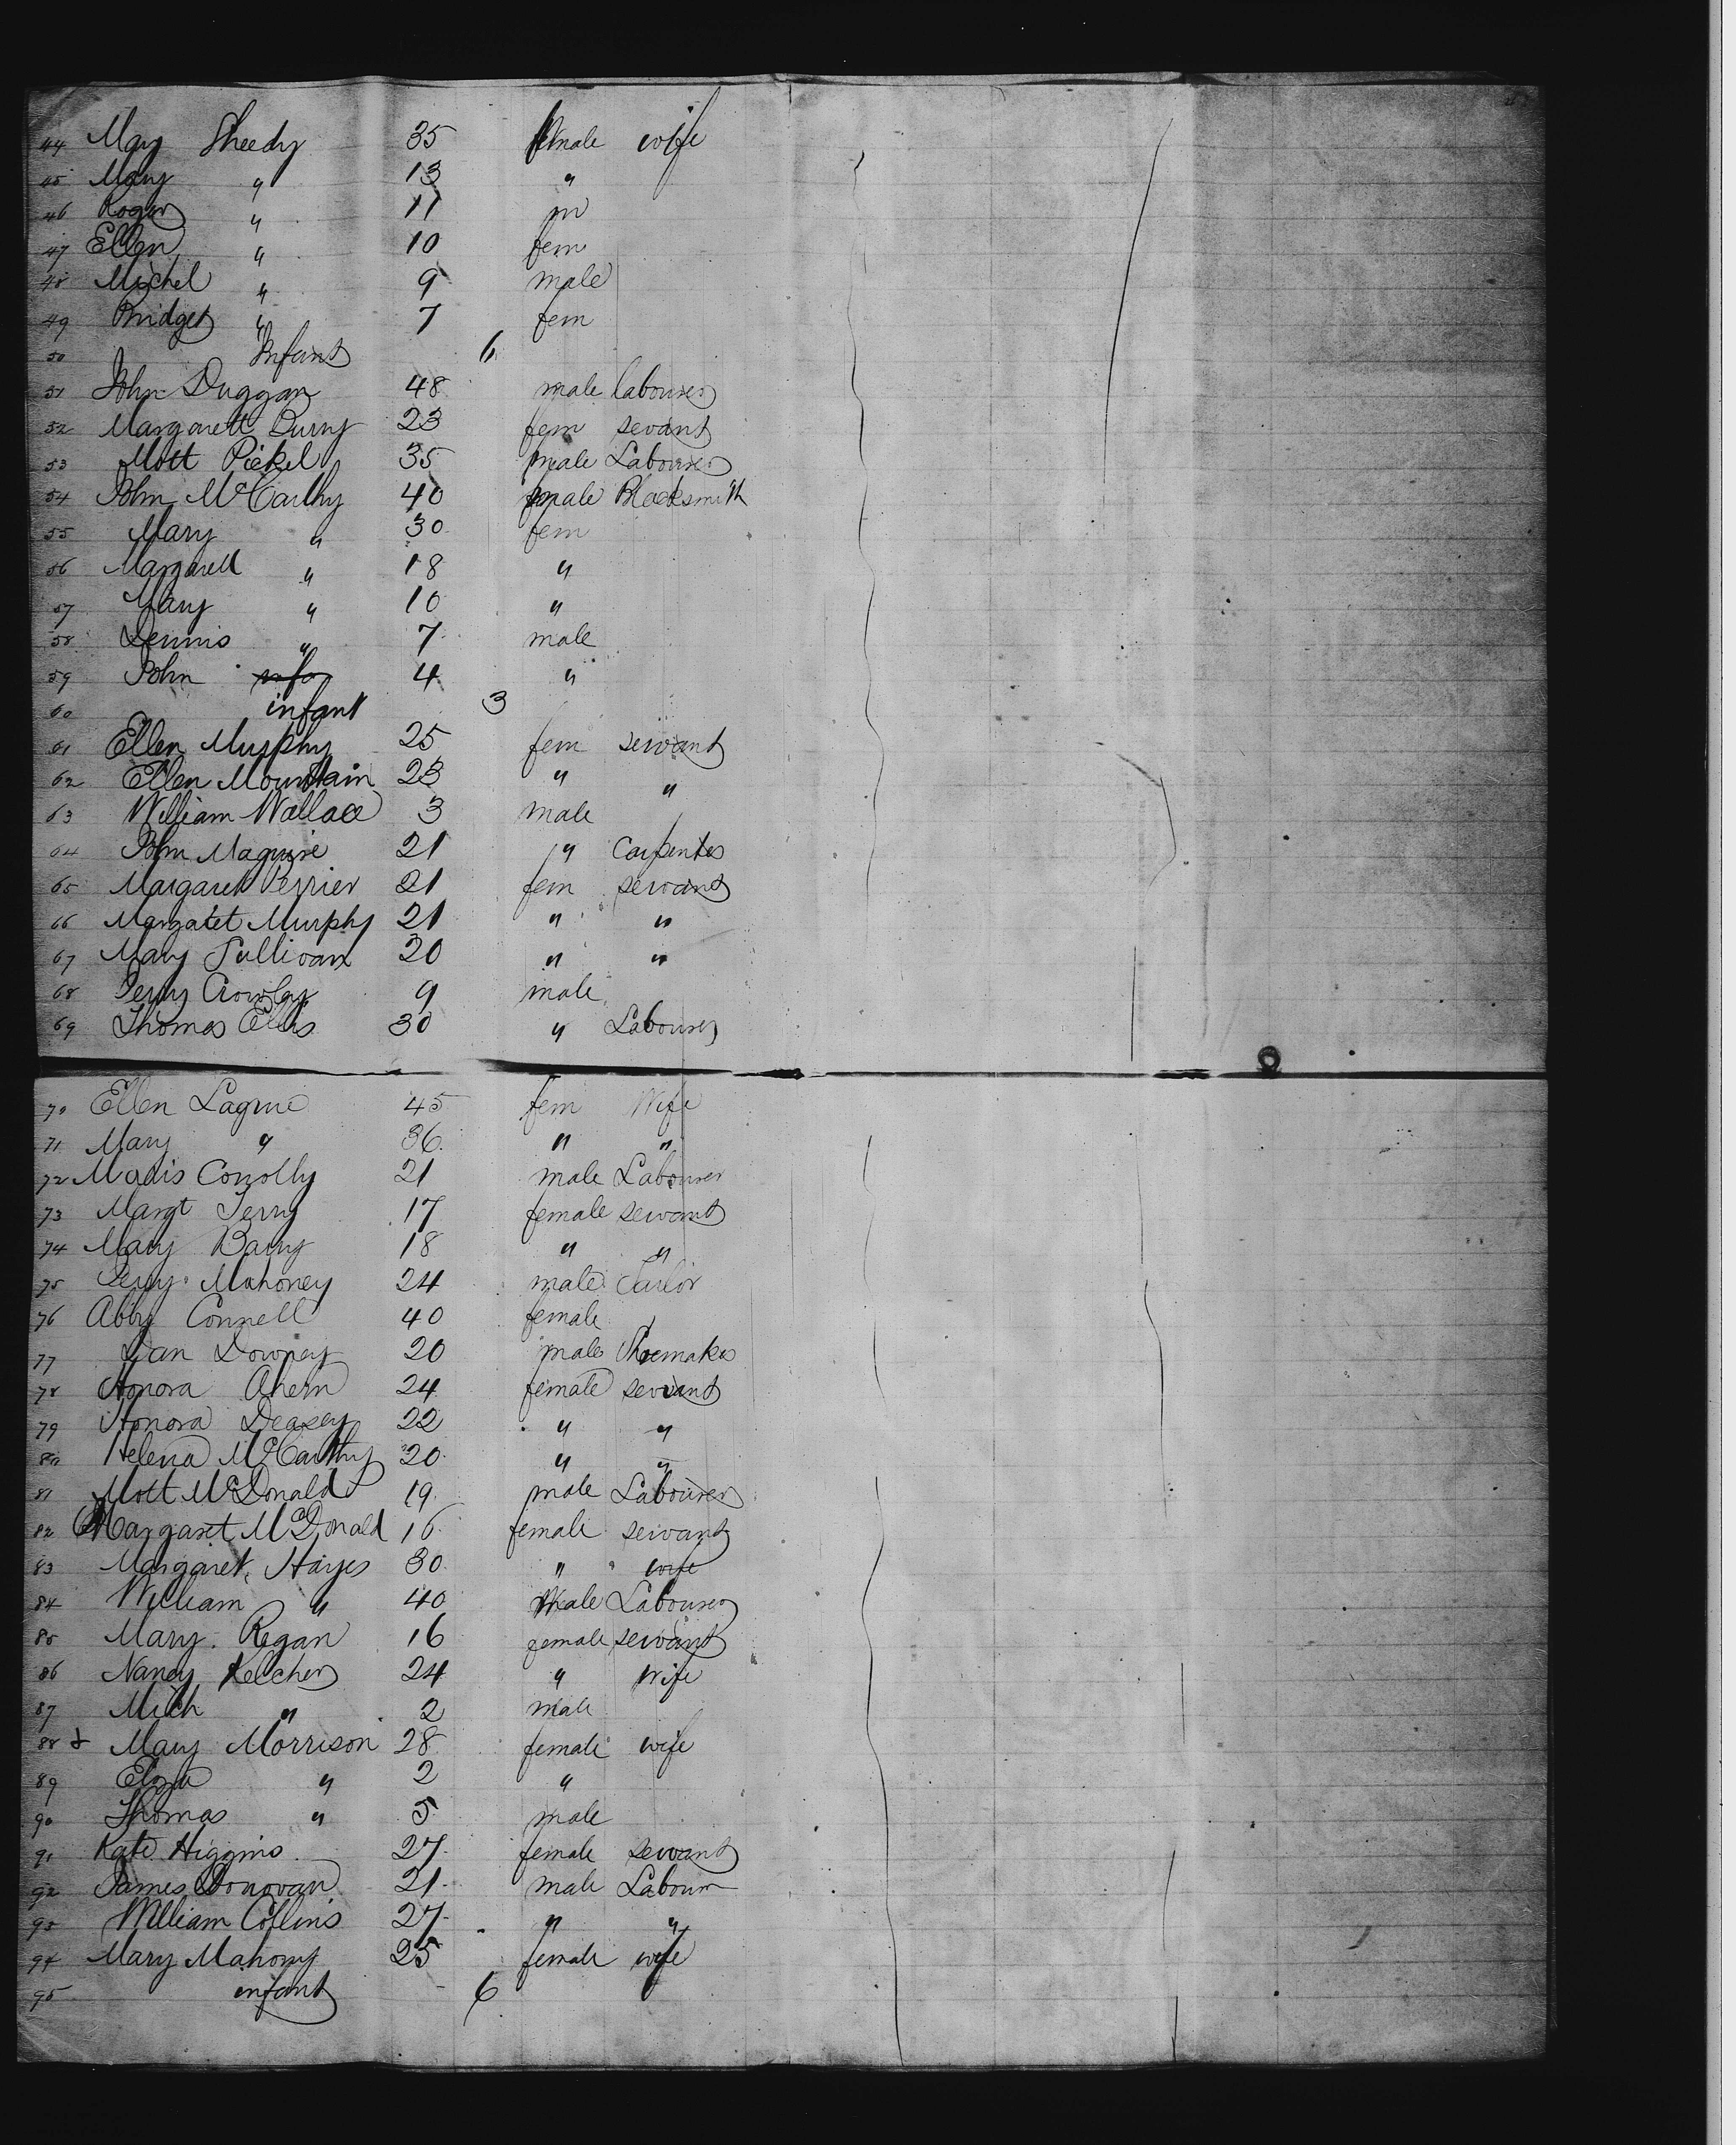 44 Mary Sheedy 35 female wife
45 Mary " 13 "
46 Roger " 11 m
47 Ellen " 10 fem
48 Michel " 9 male
49 Bridget " 7 fem
50 Infant 6
51 John Duggan 48 male labourer
52 Margarett 23 fem sevant
53 Mott 35 male Labourer
54 John McCarthy 40 male Blacksmith
55 Mary " 30 fem
56 Margarett " 18 "
57 Mary " 10 "
58 Dennis " 7 male
59 John 4 "
60 infant 3
61 Ellen Murphy 25 fem servant
62 Ellen Mountain 23 " "
63 William Wallace 3 male
64 John Maguire 21 " Carpenter
65 Margaret Perrier 21 fem servant
66 Margaret Murphy 21 " "
67 Mary Sullivan 20 " "
68 Jerry Crowley 9 male
69 Thomas Ellis 30 " Labourer
70 Ellen 45 fem Wife
71 Mary " 36 " "
72 Conolly 21 male Labourer
73 Margt Terry 17 female servant
74 Mary Barry 18 " "
75 Jerry Mahoney 24 male Tailor
76 Abby Connell 40 female
77 Dan Downey 20 male Shoemaker
78 Honora Ahern 24 female servant
79 Honora Deasey 22 " "
80 Helena McCarthy 20 " "
81 Mott McDonald 19 male Labourer
82 Margaret McDonald 16 female servant
83 Margaret Hayes 30 " wife
84 William " 40 Male Labourer
85 Mary Regan 16 female servant
86 Nancy Kelcher 24 " Wife
87 Mich " 2 male
88 Mary Morrison 28 female wife
89 Eliza " 2 "
90 Thomas " 5 male
91 Kate Higgins 27 female servant
92 James Donovan 21 male Labourer
93 William Collins 27 " "
94 Mary Mahony 25 female wife
95 infant 6